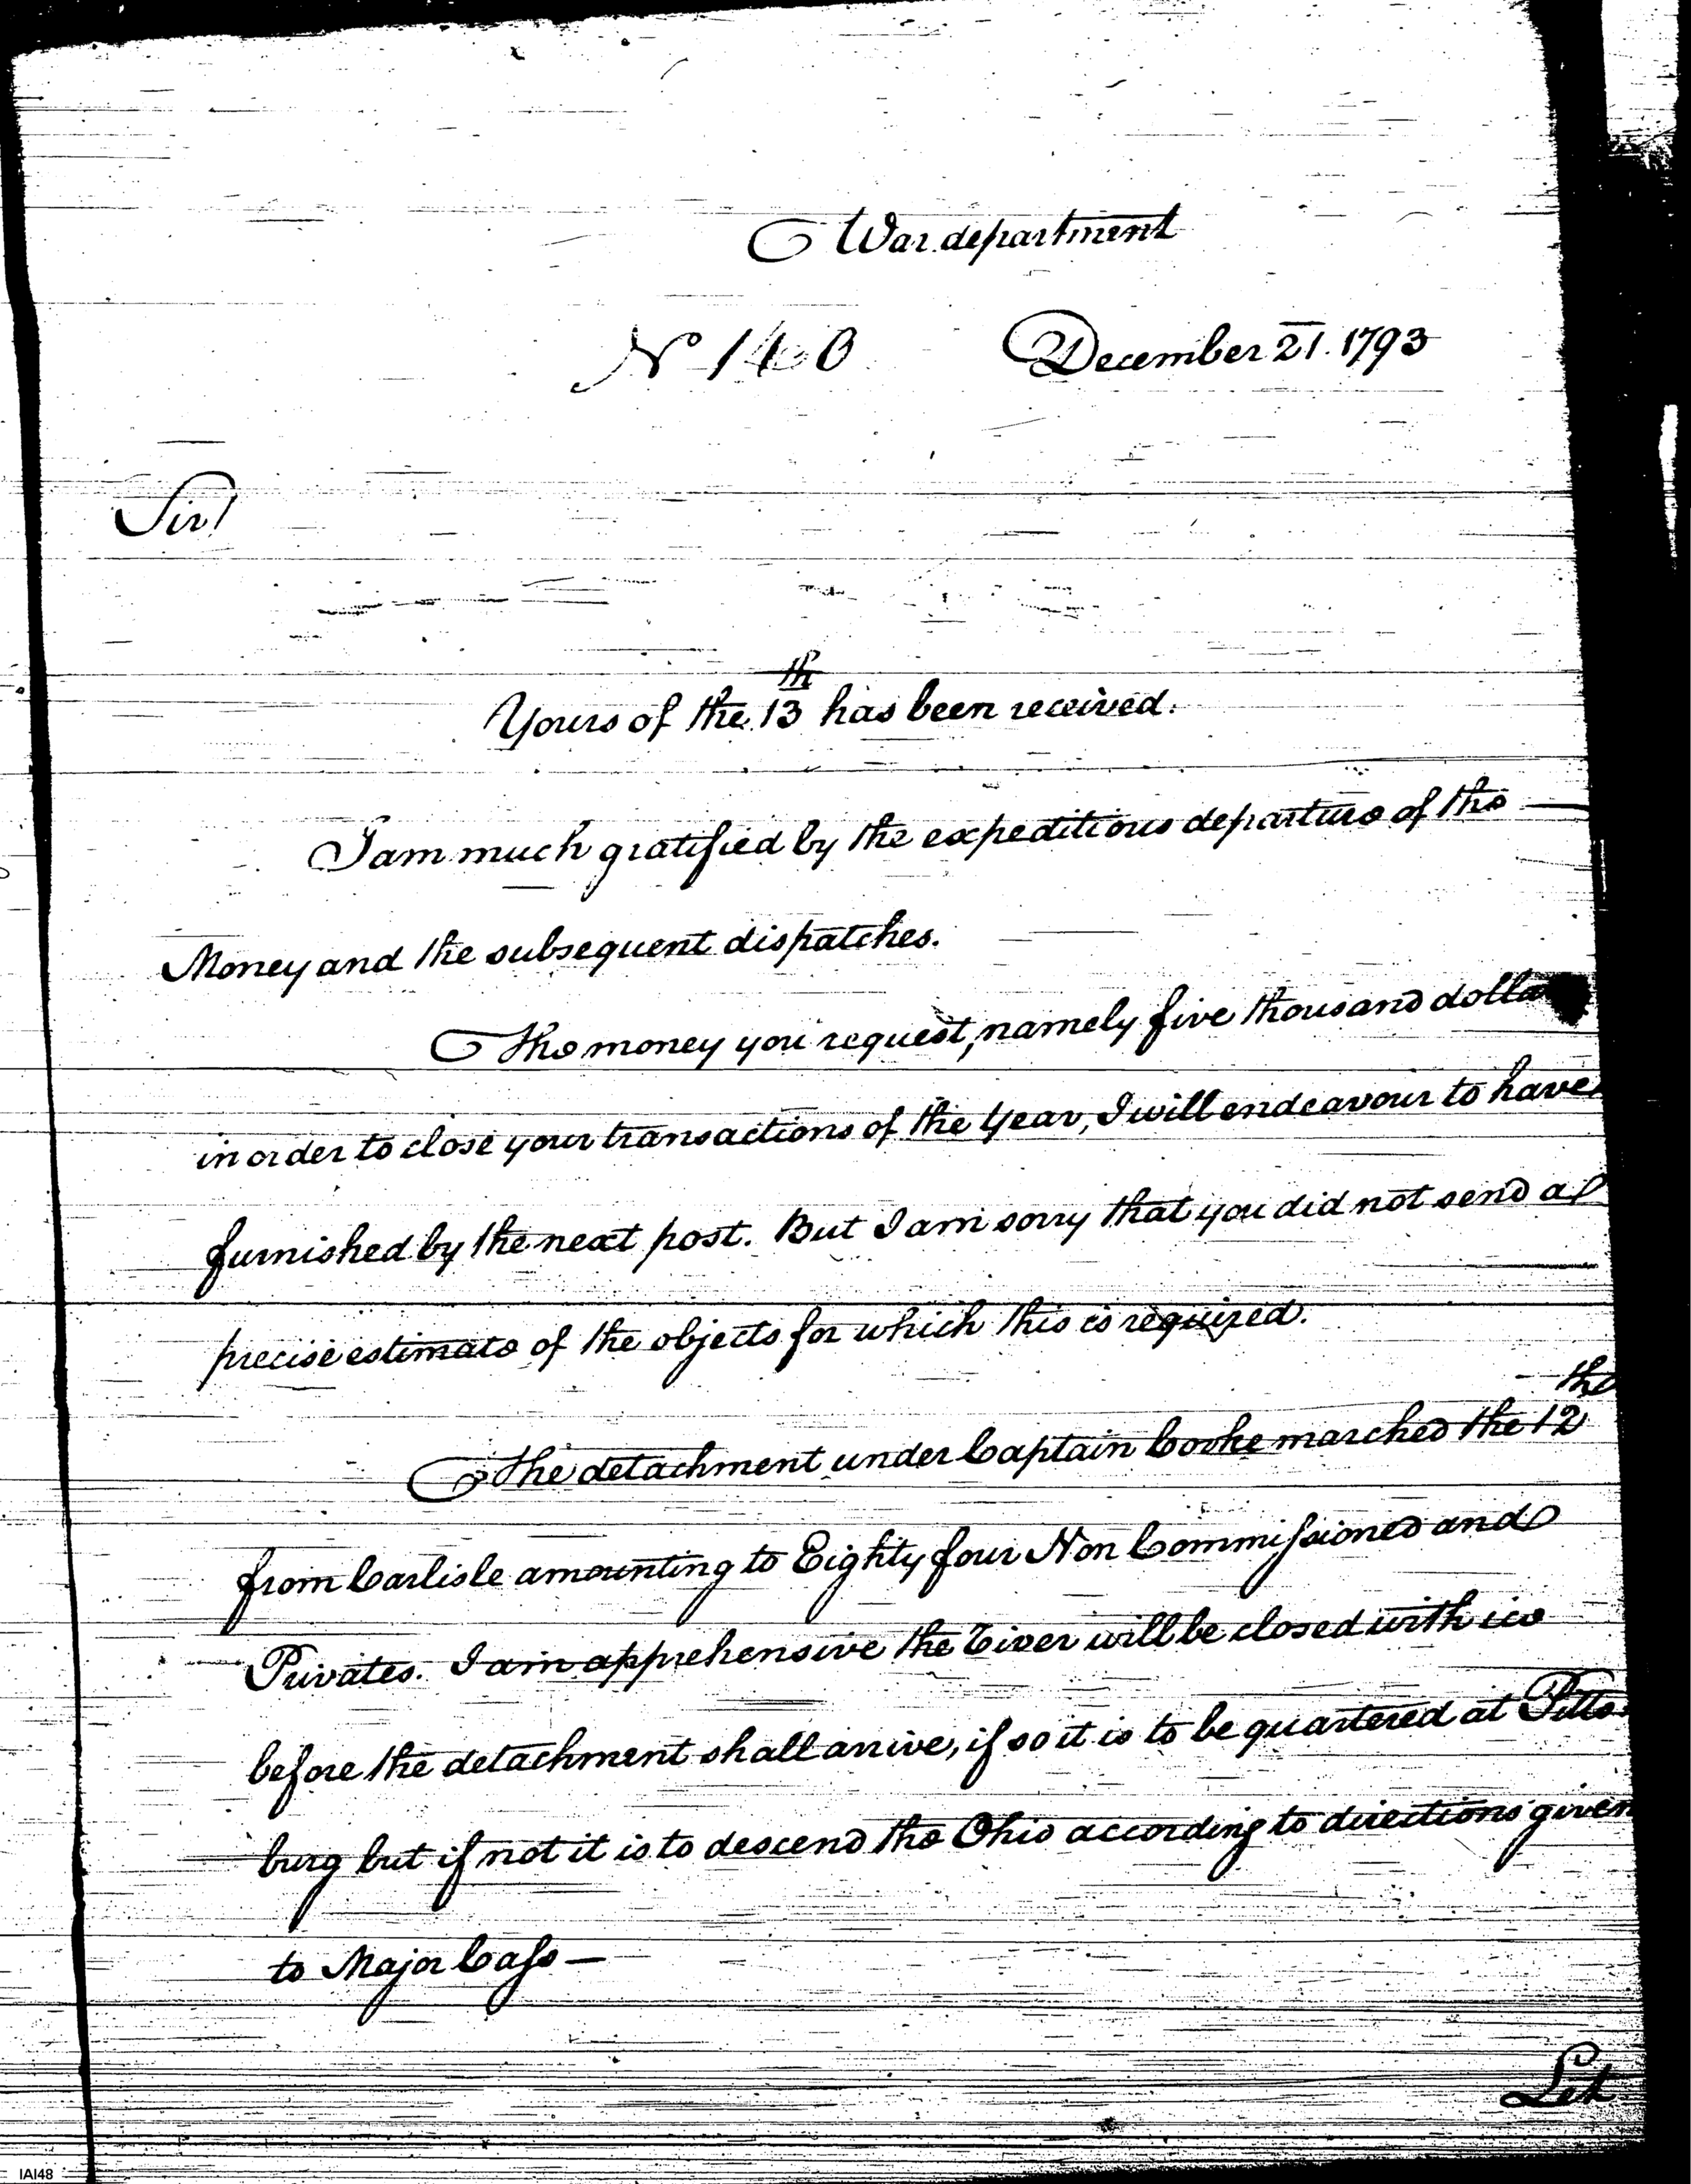 War department
No 140 December 21. 1793
Sir!
Yours of the 13th has been received.
I am much gratified by the expeditious departure of the
Money and the subsequent dispatches.
The money you request, namely five thousand dolla
in order to close your transactions of the Year, I will endeavour to have
furnished by the next post. But I am sorry that you did not send a
precise estimate of the objects for which this is required.
The detachment under Captain Cooke marched the 12th
from Carlisle amounting to Eighty four Non Commissioned and
Privates. I am apprehensive the River will be closed with ice
before the detachment shall arrive, if so it is to be quartered at Pitts
burg but if not it is to descend the Ohio according to directions given
to Major Cass —
Let
IAI48